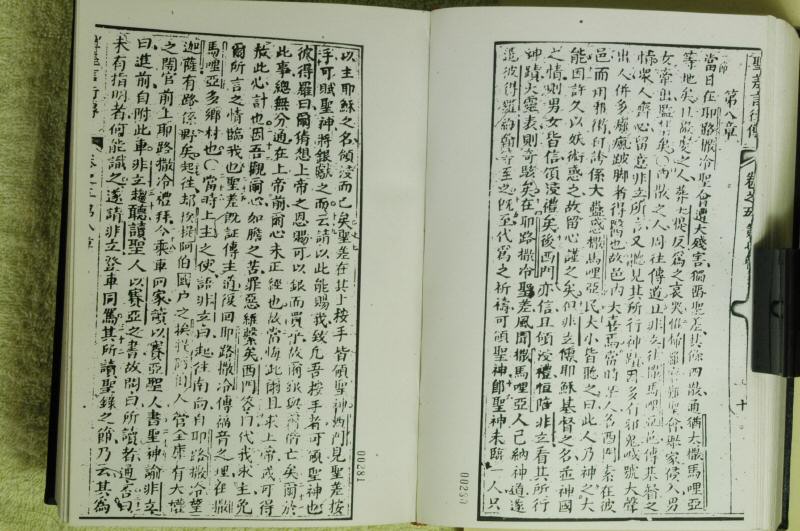 聖差言行傳
第八章
當日在耶路撒冷聖會遭大殘害獨留聖差其餘四散通猶大撒馬哩亞
等地矣且嚴愛之人葬士提反為之哀哭惟掃羅殘壞聖會舉家侯入男
女帶出監禁矣四散之人周往傳道且非立往撒馬哩亞邑傳基督之
情眾人齊心留意非立所言又聽見其所行神蹟因多有邪鬼喊號大聲
出人併多癱瘋跛脚者得醫也故邑內大喜焉當時某人名西門素在彼
邑而用邪術自誇係大蠱惑撒馬哩亞民大小皆聽之曰此人乃神之大
能因許久以妖術惑之故留心謹之矣但非立傳耶穌基督之名並神國
之情則男女皆信領浸禮矣後西門亦信且領浸禮恒隨非立看其所行
神蹟大靈表則奇駭矣在耶路撒冷聖差風聞撒馬哩亞人已納神道遂
遣彼得羅約翰等至之既至代為之祈禱可領聖神即聖神未臨一人只
00280
以主耶穌之名領浸而已矣聖差在其上按手皆領聖神西門見聖差按
手可賦聖神將銀獻之而云請以此能賜我致凡吾按手者可領聖神也
彼得羅曰爾猜想上帝之恩賜可以銀而買乎故爾銀與爾偕亡矣爾於
此事總無分通在上帝前爾心未正經也故當悔此惡且求上帝或可得
赦此心計也因吾觀爾心如膽之苦罪惡維繫矣西門答曰代我求主免
爾所言之情臨我也聖差既証傳主道後回耶路撒冷傳福音之理在撒
馬哩亞多鄉村也當時上主之使語非立曰起往南向自耶路撒冷至
迦薩有路係野矣起往却挨提阿伯國戶之挨提阿伯人管全庫有大權
之閹官前上耶路撒冷禮拜今乘車回家讀以賽亞聖人書聖神諭非立
曰進前自附此車非立趨聽讀聖人以賽亞之書故問曰所讀者通否曰
未有指明者何能識之遂請非立登車同篤其所讀聖錄之節乃云其為
00281